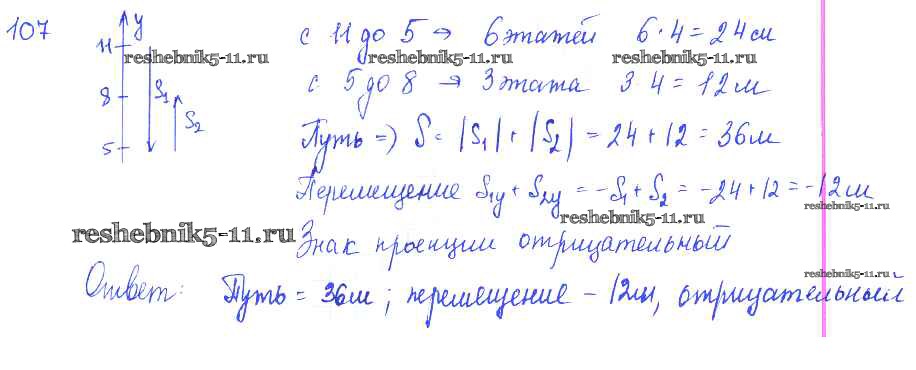 107
y
11
8
5
S₁
S₂
с 11 до 5 → 6 этажей 6·4=24 см
reshebnik5-11.ru reshebnik5-11.ru reshebnik5-11.ru
с 5 до 8 → 3 этажа 3 4=12м
Путь => S = |S₁|+|S₂| = 24+12 = 36м
Перемещение S₁y + S₂y = -S₁+S₂ = -24+12 = -12м
reshebnik5-11.ru
reshebnik5-11.ru
reshebnik5-11.ru Знак проекции отрицательный
reshebnik5-11.ru
Ответ: Путь = 36м; перемещение - 12м, отрицательный